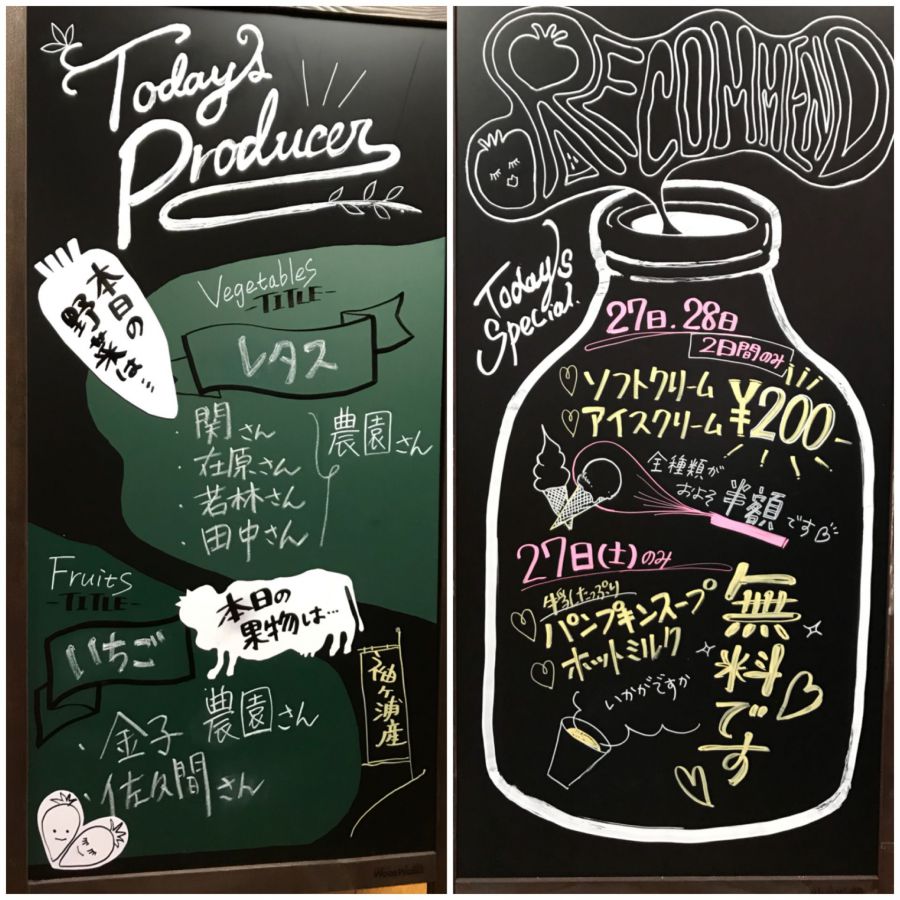 Today's
Producer
本日の
野菜は…
Vegetables
-TITLE-
レタス
・関さん
・在原さん
・若林さん
・田中さん
農園さん
Fruits
-TITLE-
いちご
本日の
果物は…
・金子 農園さん
・佐久間さん
袖ヶ浦産
RECOMMEND
Today's
Special.
27日.28日
2日間のみ
♡ソフトクリーム
♡アイスクリーム ¥200
全種類が
およそ 半額 です
27日(土)のみ
牛乳たっぷり
♡パンプキンスープ
♡ホットミルク
無料です
いかがですか